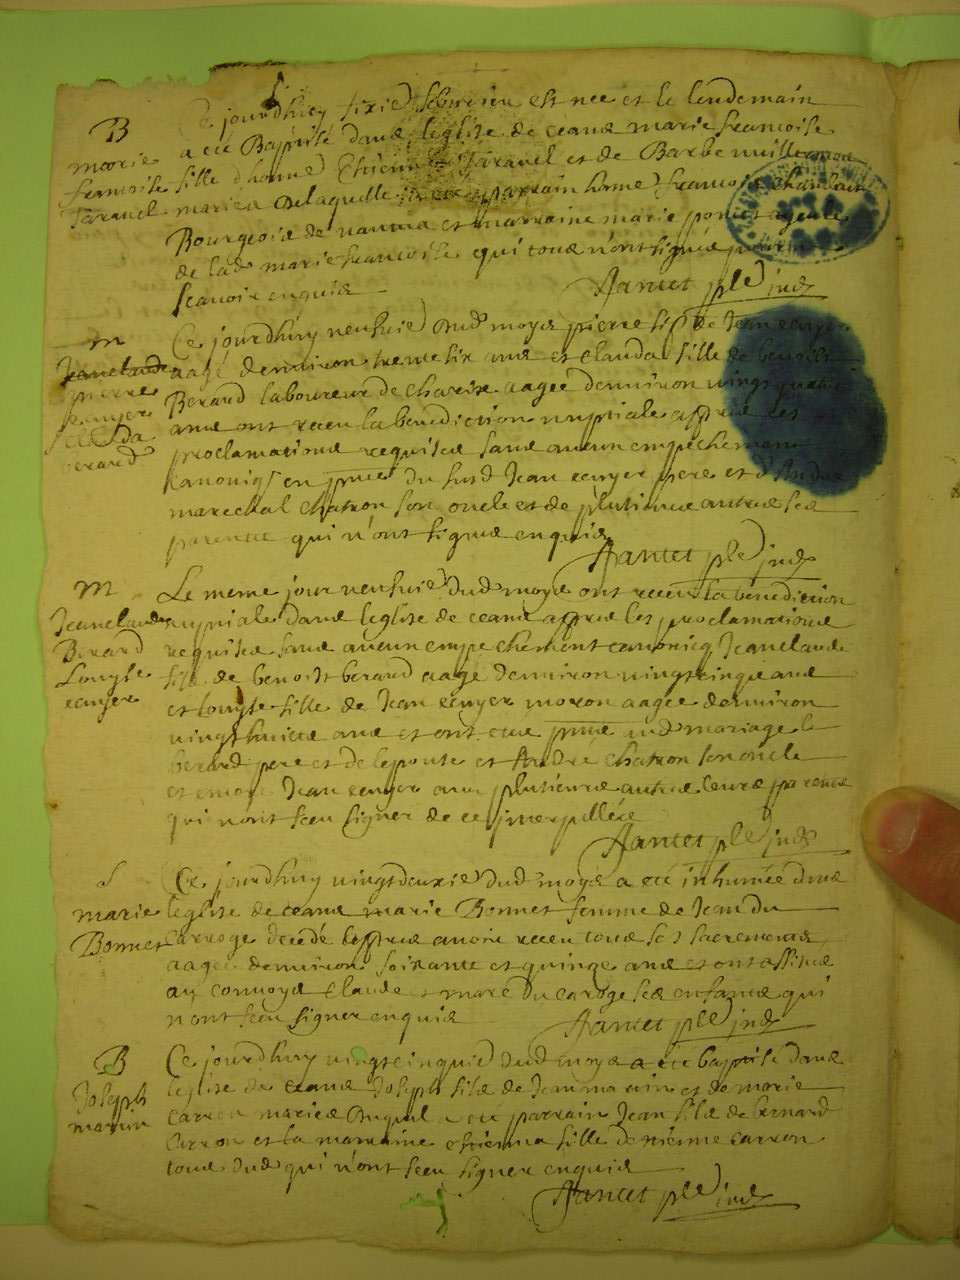 B
marie
francoise
Taravel
Ce jourdhuy sixie febvrier est nee et le lendemain
a ete Baptisé dans leglise de ceans marie francoise
fille dhonne Estienne Taravel et de Barbe
mariés Delaquelle parrain honne francois
Bourgeois de et marraine marie ponset ageule
de lade marie francoise qui tous n'ont signés pour ne
scavoir enquis
Hancet ptre
m
Jeanclaude
pierre
Cl da
berard
Ce jourdhuy neufvie dud moys pierre fils de Jean
aagé denviron trente six ans et Clauda fille de benoist
Berard laboureur de aagee denviron vingt quatre
ans ont receu la benediction nuptiale apprès les
proclamations requises sans aucun empechement
kanoniq en pnce du susd Jean pere et d Andre
marechal chatron son oncle et de plusieurs autres ses
parents qui n'ont signés enquis
Hancet ptre
m
Jeanclaude
Berard
Louyse
Le meme jour neufvie dud moys ont receu la benediction
nupsiale dans leglise de ceans apprès les proclamations
requises sans aucun empechement canoniq Jeanclaude
fils de benoist berard aagé denviron vingtcinq ans
et louyse fille de Jean moron aagee denviron
vingthuict ans et ont etes pnts aud mariage le
berard pere et de lepouse et André chatron son oncle
et encor Jean avec plusieurs autres leurs parents
qui n'ont sceu signer de ce jnterpellés
Hancet ptre
S
marie
Bonnet
Ce jourdhuy vingtdeuxie dud moys a ete inhumée dans
leglise de ceans marie Bonnet femme de Jean du
carroge decedé apprès avoir receu tous ses sacrements
aagee denviron soixante et quinze ans et ont assistés
au convoys Claude et marc du caroge ses enfants qui
n'ont sceu signer enquis
Hancet ptre
B
Joseph
marin
Ce jourdhuy vingtcinquie dud moys a ete baptisé dans
leglise de ceans Joseph fils de Jean marin et de marie
carron mariés Duquel a ete parrain Jean fils de bernard
Carron et la marraine estienna fille de etienne carron
tous dud qui n'ont sceu signer enquis
Hancet ptre